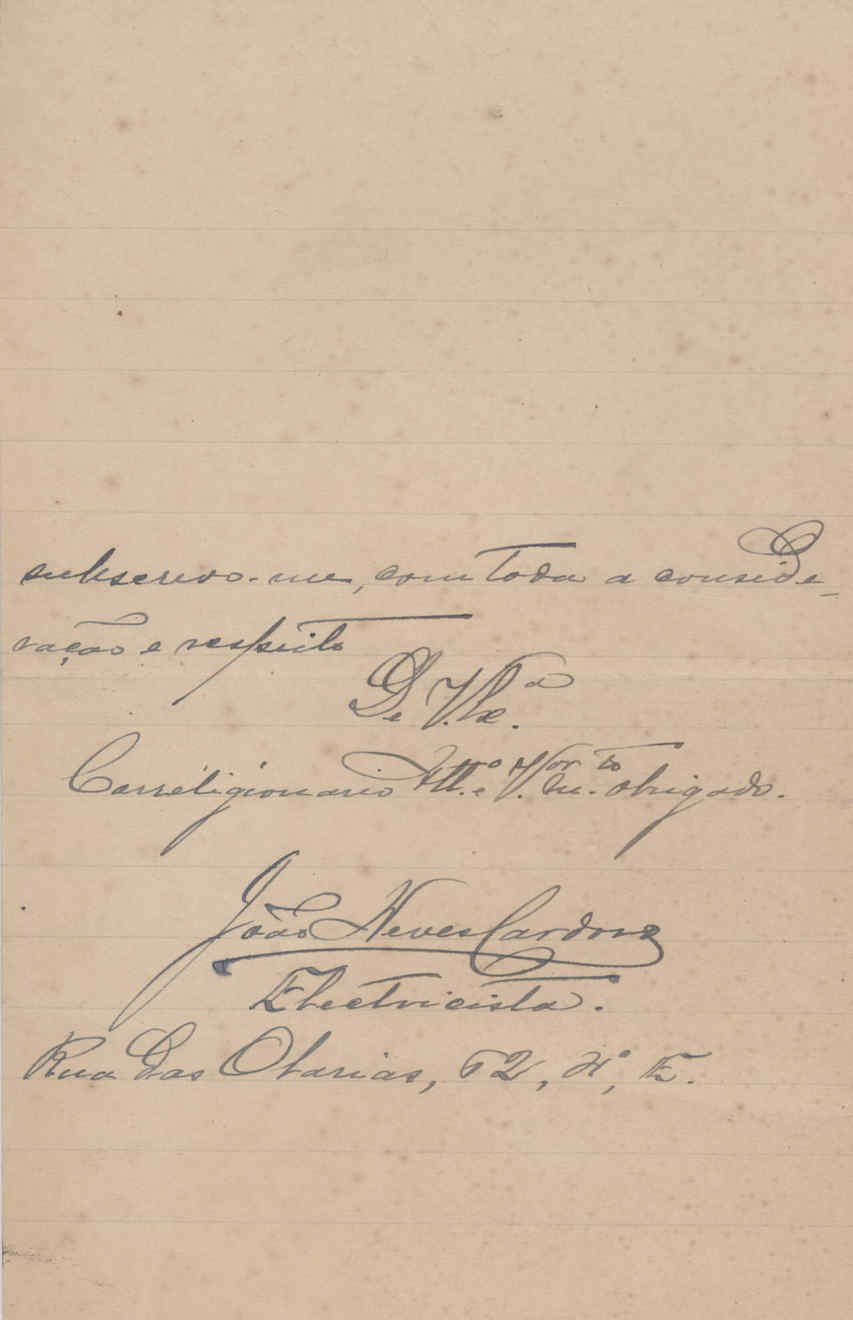 subscrevo-me, com toda a conside-
ração e respeito
De V. Ex.ª
Correligionario Att.º V.or m.to obrigado.
João Neves Cardoso
Electricista.
Rua das Olarias, 62, 4º, E.